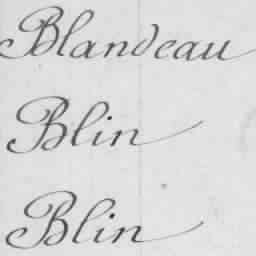 Blandeau
Blin
Blin